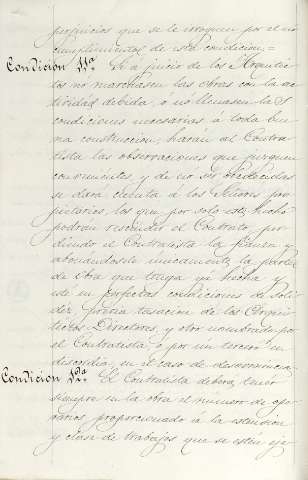 perjuicios que se le irroguen por el no
cumplimiento de esta condicion.=
Condición 11ª Si á juicio de los Arquitec-
tos no marchasen las obras con la ac-
tividad debida, o no llenasen las
condiciones necesarias á toda bue-
na construccion, harán al Contra-
tista las observaciones que juzguen
convenientes, y de no ser obedecidas
se dará cuenta á los Señores pro-
pietarios, los que por solo este hecho
podrán rescindir el Contrato, per-
diendo el Contratista la fianza y
abonandosele unicamente la parte
de obra que tenga ya hecha y
esté en perfectas condiciones de soli-
dez previa tasacion de los Arqui-
tectos Directores, y otro nombrado por
el Contratista, o por un tercero en
discordia, en el caso de desavenencia.
Condición 12ª El Contratista deberá tener
siempre en la obra el número de ope-
rarios proporcionado á la estension
y clase de trabajos que se estén eje-